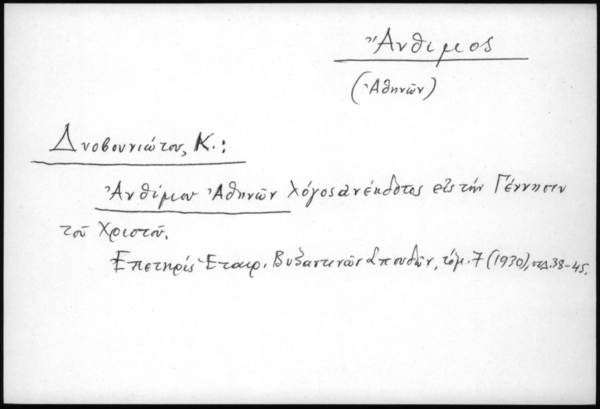 Ἄνθιμος
(Ἀθηνῶν)
Δυοβουνιώτου, Κ.:
Ἀνθίμου Ἀθηνῶν λόγος ανέκδοτος εἰς τὴν Γέννησιν
τοῦ Χριστοῦ.
Ἐπετηρὶς Ἑταιρ. Βυζαντινῶν Σπουδῶν, τόμ. 7 (1930), σελ. 38-45.